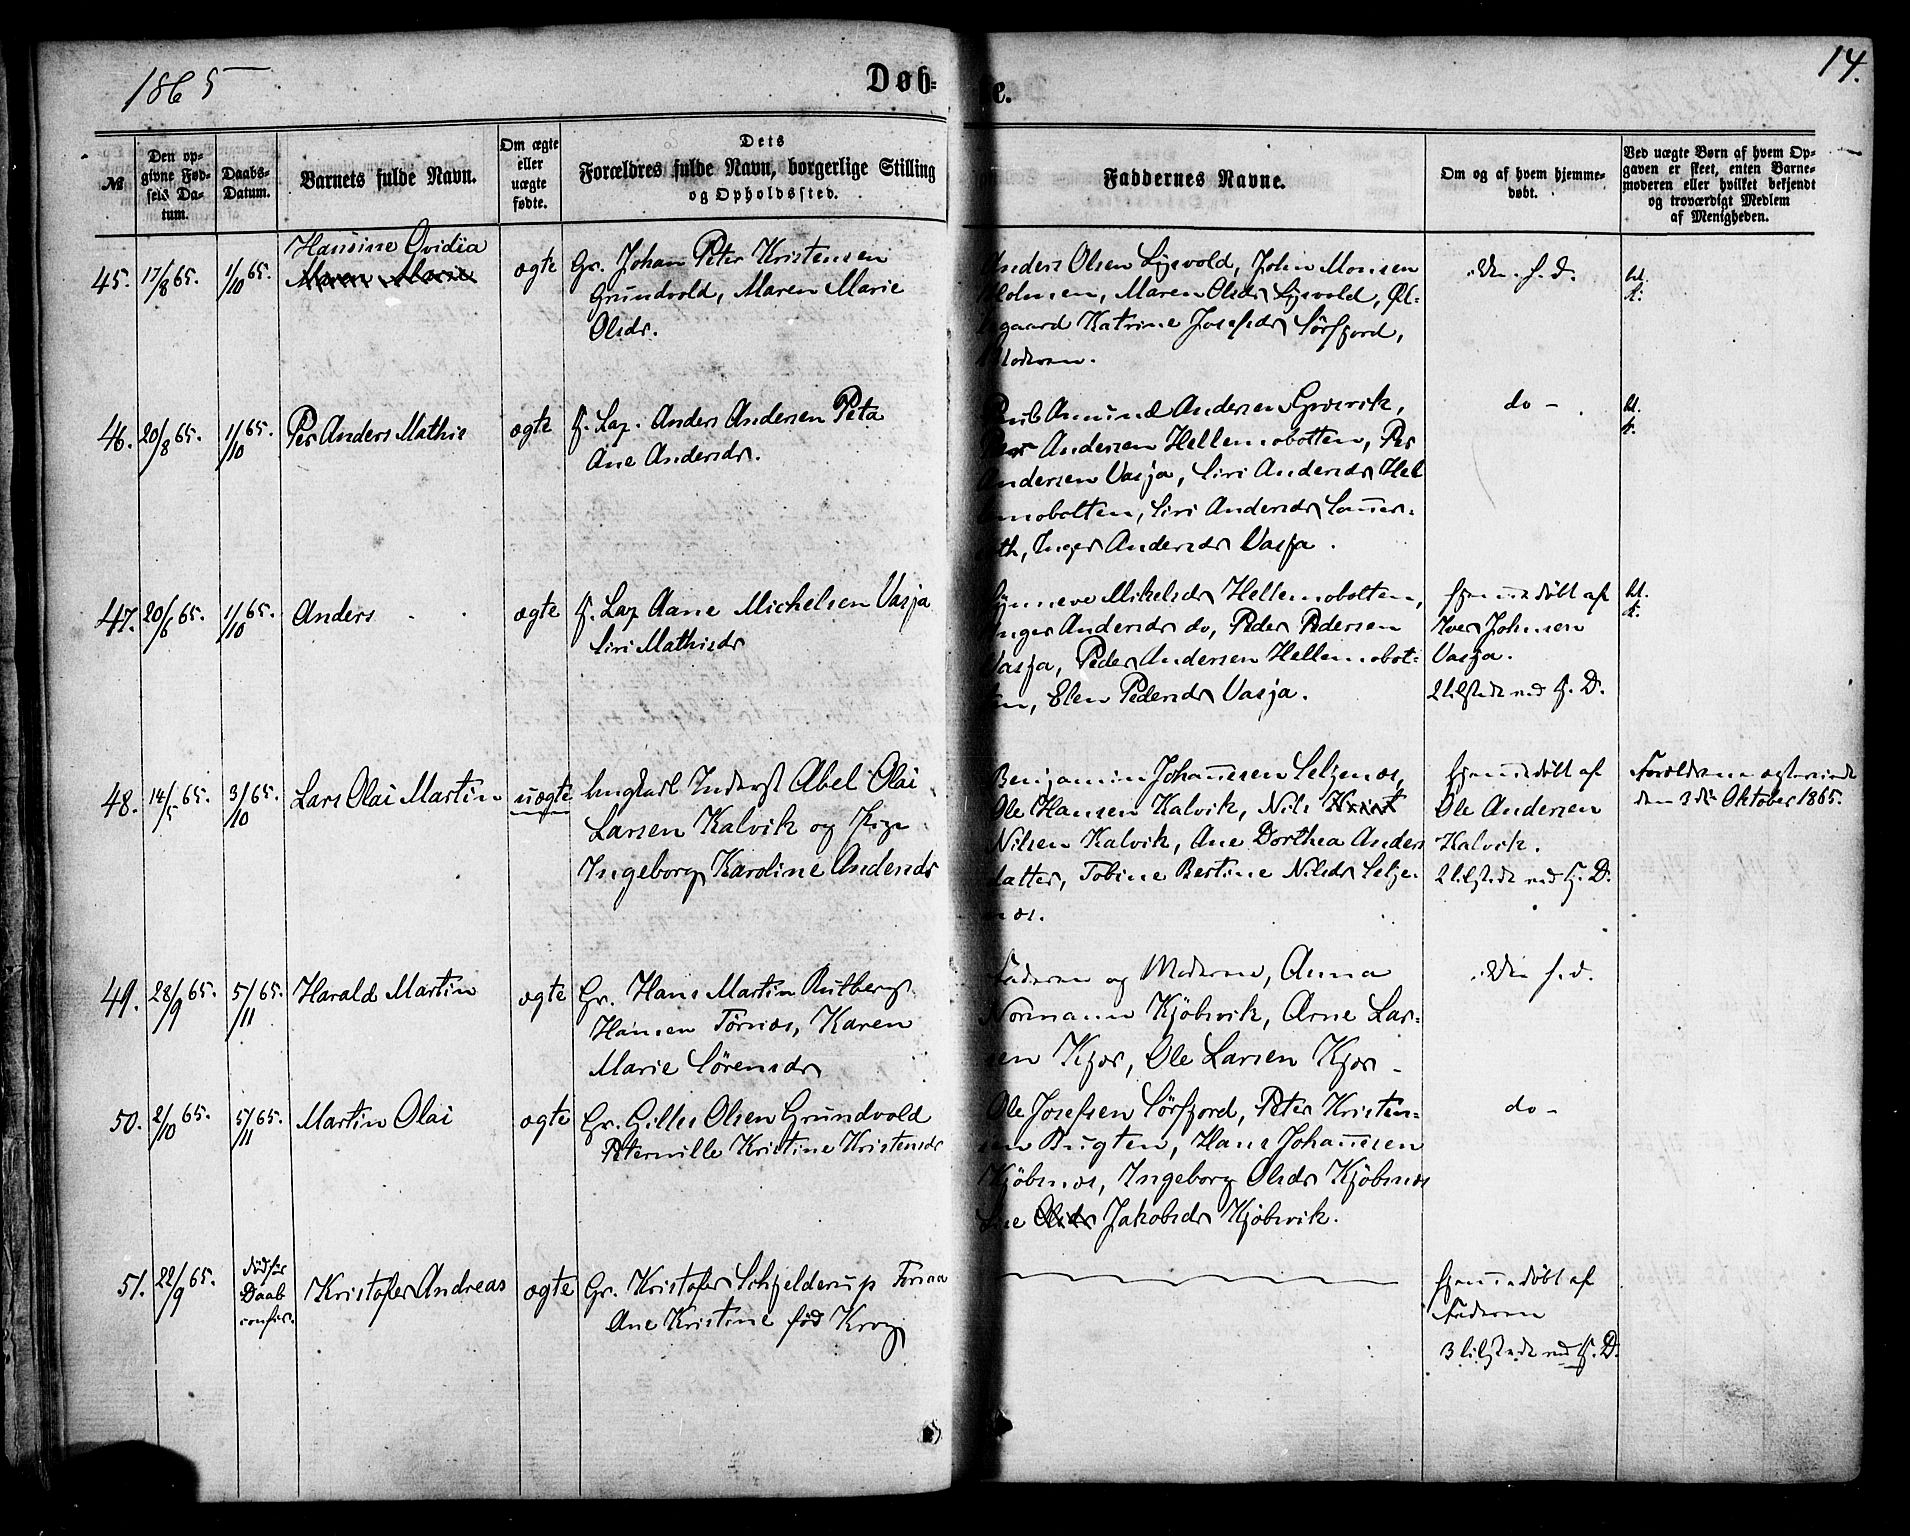 1865
Døb-
te.
14.
№
Den op-
givne Fød-
sels Da-
tum.
Daabs-
Datum.
Barnets fulde Navn.
Om ægte
eller
uægte
fødte.
Dets
Forældres fulde Navn, borgerlige Stilling
og Opholdssted.
Faddernes Navne.
Om og af hvem hjemme-
døbt.
Ved uægte Børn af hvem Op-
gaven er skeet, enten Barne-
moderen eller hvilket bekjendt
og troværdigt Medlem
af Menigheden.
45. 17/8 65. 1/10 65.
Hansine Ovidia
Maren Marie
ægte
Gr. Johan Peter Kristensen
Grundvold, Maren Marie
Olsdr.
Anders Olsen Lysvold, John Monsen
Holmen, Maren Olsdr Lysvold, Øl-
egaard Katrine Josefsdr Sörfjord,
Moderen.
46. 20/8 65. 1/10 65.
Per Anders Mathis
ægte
F. Lap. Anders Andersen Peta
Ane Andersdr.
Amund Andersen
Andersen Hellemobotten, Per
Andersen Vasja, Siri Andersdr Hel
emobotten, Siri Andersdr
Inger Andersdr Vasja.
do -
47. 20/6 65. 1/10 65.
Anders
ægte
F. Lap Aane Michelsen Vasja
Siri Mathisdr
Synneve Mikelsdr Hellemobotten,
Inger Andersdr do, Peder Pedersen
Vasja, Peder Andersen Hellemobot-
ten, Elen Pedersdr Vasja.
Hjemmedøbt af
Iver Johnsen
Vasja.
2 tilstede ved H. D.
48. 14/5 65. 3/10 65.
Lars Olai Martin
uægte
Ungkarl Inderst Abel Olai
Larsen Kalvik og Pige
Ingeborg Karoline Andersdr
Benjamin Johannesen Seljenæs,
Ole Hansen Kalvik, Nils
Nilsen Kalvik, Ane Dorthea Anders
datter, Tobine Bertine Nilsdr Selje-
næs.
Hjemmedøbt af
Ole Andersen
Kalvik.
2 tilstede ved H. D.
Forældrene ægteviede
den 3die Oktober 1865.
49. 28/9 65. 5/11 65.
Harald Martin
ægte
Gr. Hans Martin Rutberg
Hansen Tørnæs, Karen
Marie Sörensdr
Faderen og Moderen, Anna
Normann Kjöbvik, Arne Lar-
sen Kjær, Ole Larsen Kjær -
50. 2/10 65. 5/11 65.
Martin Olai
ægte
Gr. Gilles Olsen Grundvold
Peternille Kristine Kristensdr
Ole Josefsen Sörfjord, Peter Kristen-
sen Bugten, Hans Johannesen
Kjöbnæs, Ingeborg Olsdr Kjöbnæs
Olsdr Jakobsdr Kjöbvik.
do -
51. 22/9 65.
død før
Daab
confir.
Kristofer Andreas
ægte
Gr. Kristofer Schjelderup
Ane Kristine fød Krog
Hjemmedøbt af
Faderen
3 tilstede ved H. D.